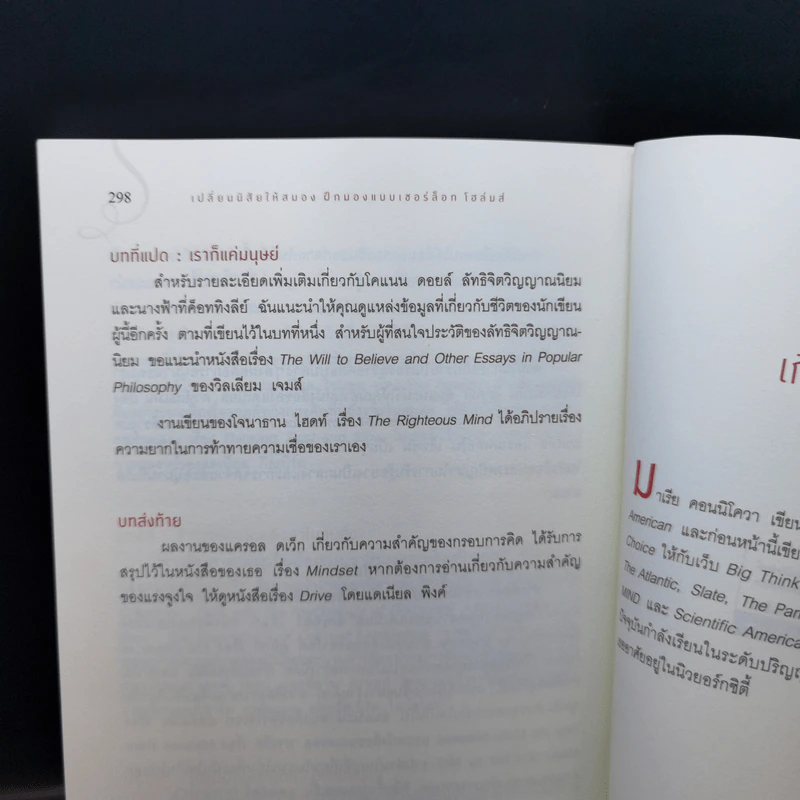 298
เปลี่ยนนิสัยให้สมอง ฝึกมองแบบเชอร์ล็อก โฮล์มส์
บทที่แปด : เราก็แค่มนุษย์
สำหรับรายละเอียดเพิ่มเติมเกี่ยวกับโคแนน ดอยล์ ลัทธิจิตวิญญาณนิยม
และนางฟ้าที่ค็อททิงลีย์ ฉันแนะนำให้คุณดูแหล่งข้อมูลที่เกี่ยวกับชีวิตของนักเขียน
ผู้นี้อีกครั้ง ตามที่เขียนไว้ในบทที่หนึ่ง สำหรับผู้ที่สนใจประวัติของลัทธิจิตวิญญาณ-
นิยม ขอแนะนำหนังสือเรื่อง The Will to Believe and Other Essays in Popular
Philosophy ของวิลเลียม เจมส์
งานเขียนของโจนาธาน ไฮดท์ เรื่อง The Righteous Mind ได้อภิปรายเรื่อง
ความยากในการท้าทายความเชื่อของเราเอง
บทส่งท้าย
ผลงานของแครอล ดเว็ก เกี่ยวกับความสำคัญของกรอบการคิด ได้รับการ
สรุปไว้ในหนังสือของเธอ เรื่อง Mindset หากต้องการอ่านเกี่ยวกับความสำคัญ
ของแรงจูงใจ ให้ดูหนังสือเรื่อง Drive โดยแดเนียล พิงค์
มาเรีย คอนนิโควา เขียน
American และก่อนหน้านี้เขีย
Choice ให้กับเว็บ Big Think
The Atlantic, Slate, The Pari
MIND และ Scientific America
ปัจจุบันกำลังเรียนในระดับปริญ
เธออาศัยอยู่ในนิวยอร์กซิตี้